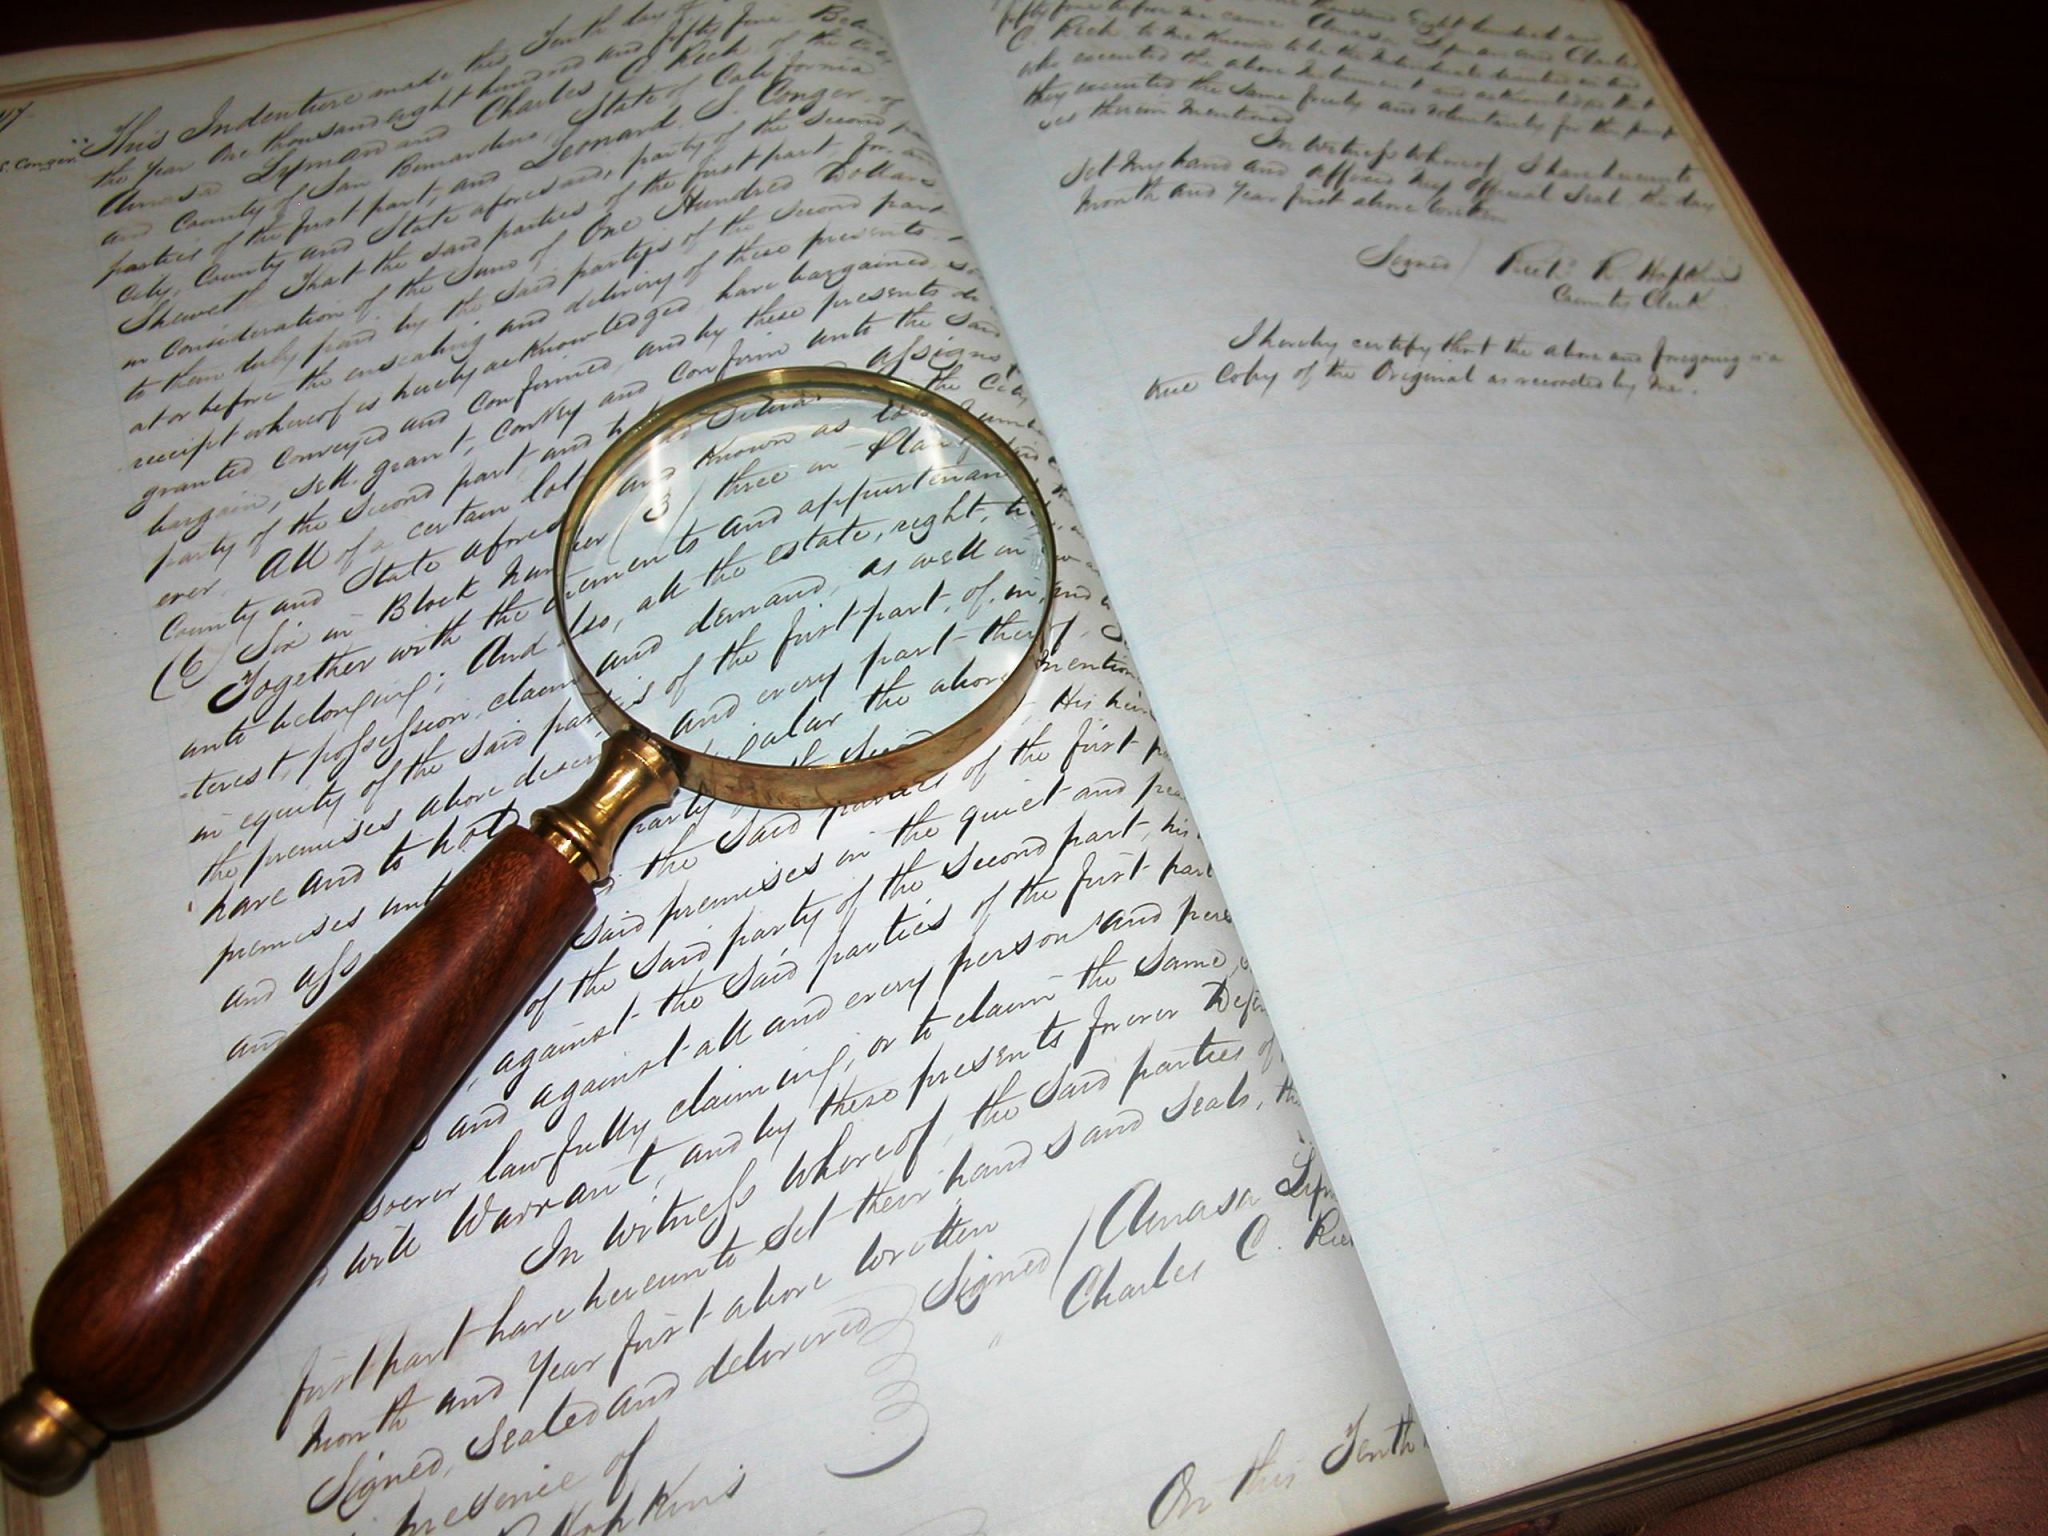 This Indenture made this Tenth day of
the year One thousand eight hundred and fifty four
Amasa Lyman and Charles C Rich of the
and County of San Bernardino, State of California
parties of the first part, and Leonard. S. Conger, of
City, County and State aforesaid, party of the second
Sheweth That the said parties of the first part, for, and
in consideration of the Sum of One Hundred Dollars
to them duly paid by the said partys of the second part
at or before the ensealing and delivery of these presents
receipt whereof is hereby acknowledged, have bargained
granted conveyed and confirmed, and by these presents do
bargain, sell, grant, convey and confirm unto the said
party of the second part, and assigns
ever. All of a certain lot the City
County and State and Known as lot
(6) Six in Block (3) three in
Together with the and appurtenan
unto belonging; And also, all the estate, right,
terest, possession, claim and demand, as well in
in equity of the said parties of the first part, of, in, and
the premises above and every part
have and to the above mention
premises unto party His heirs
and the said parties of the first
and said premises in the quiet and
of the said party of the second part, his
, against the said parties of the first part
and against all and every person and pers
soever lawfully claiming, or to claim the same
will Warrant, and by these presents forever Defen
In witness whereof, the said parties of
first part have hereunto set their hands and seals,
month and Year first above written
Signed, Sealed and delivered Signed Amasa Lym
presence of Charles C. Ric
Hopkins
On this Tenth
S. Conger
fifty four before me came Amasa Lyman and Charles
C. Rich to me known to be the individuals
who executed the above Instrument and acknowledged that
they executed the same freely and voluntarily for the
es therein mentioned
In witness whereof, I have hereunto
set my hand and affixed my Official Seal, the day
month and Year first above written
Signed R. Hopkins
County Clerk
I hereby certify that the above and foregoing is a
true Copy of the Original as recorded by me.